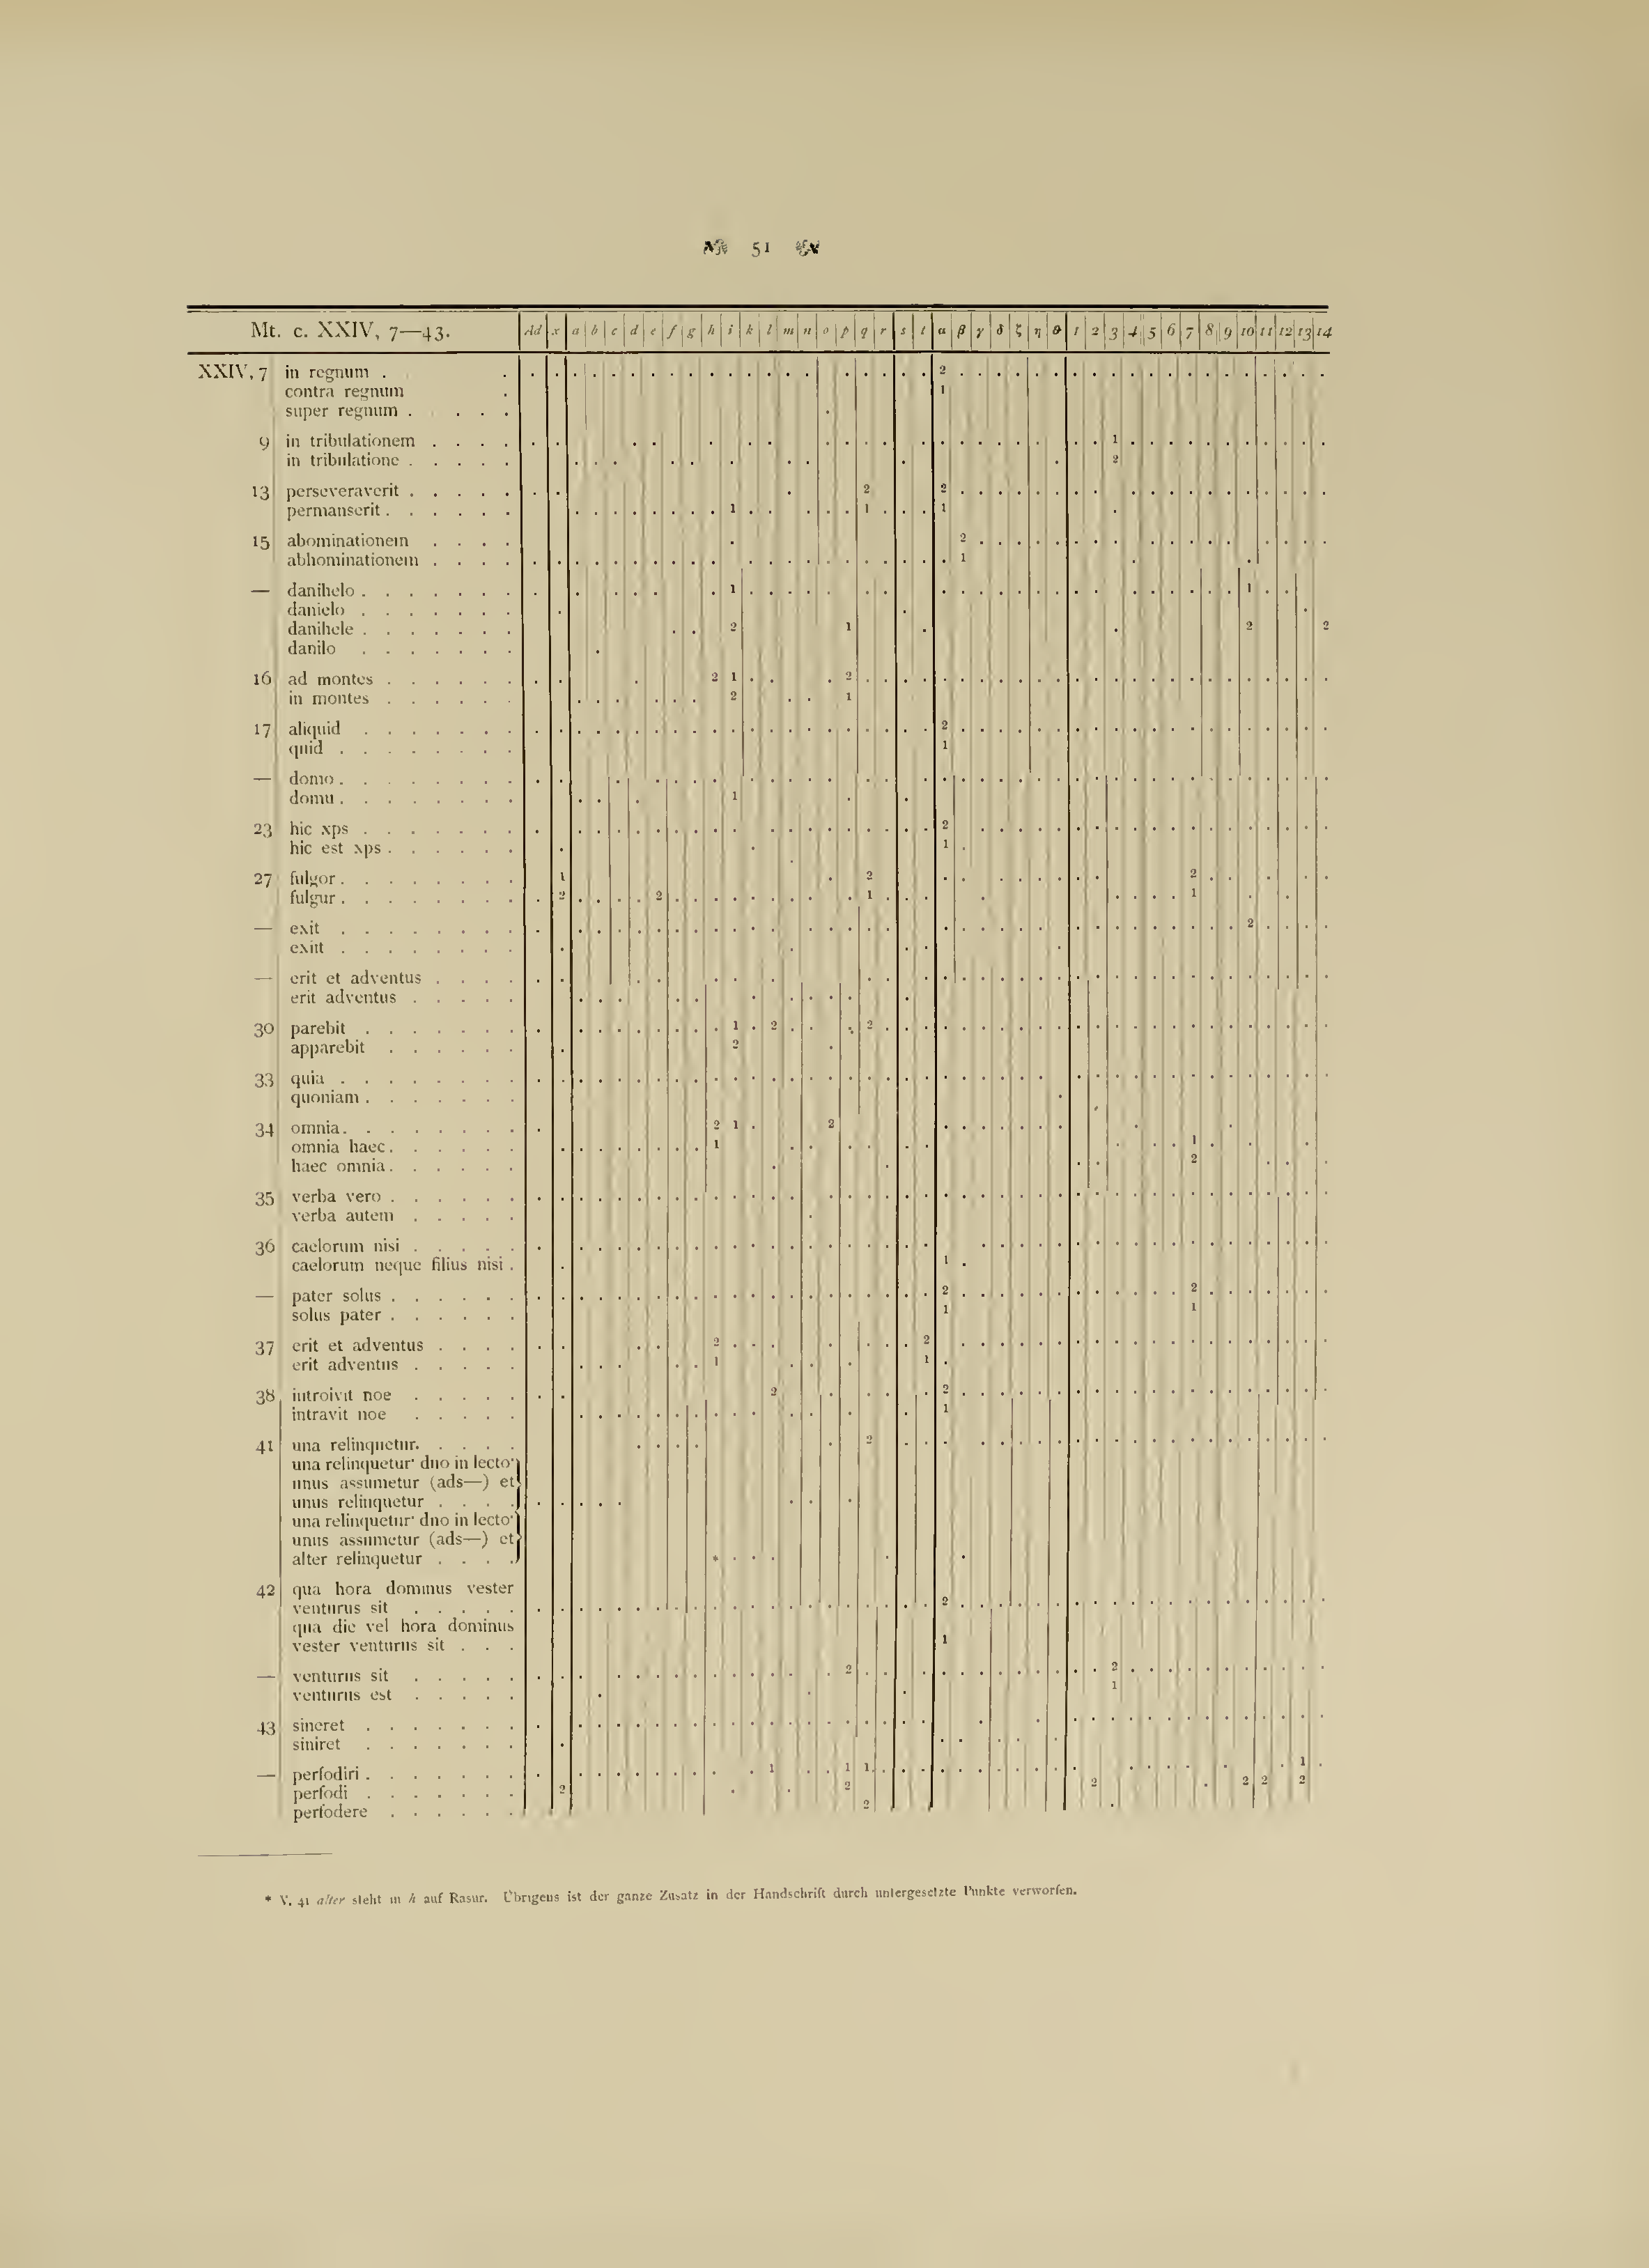 51
Mt. c. XXIV, 7—43. Ad x a b c d e f g h i k l m n o p q r s t α β γ δ ζ η θ 1 2 3 4 5 6 7 8 9 10 11 12 13 14
XXIV, 7 in regnum . . 2
contra regnum . 1
super regnum . . . .
9 in tribulationem . . . . 1
in tribulatione . . . . . 2
13 perseveraverit . . . . . 2 2
permanserit . . . . . . 1 1 1
15 abominationem . . . . 2
abhominationem . . . . 1
— danihelo . . . . . . . 1 1
danielo . . . . . . .
danihele . . . . . . . 2 1 2 2
danilo . . . . . . .
16 ad montes . . . . . . 2 1 2
in montes . . . . . . 2 1
17 aliquid . . . . . . . 2
quid . . . . . . . . 1
— domo . . . . . . . .
domu . . . . . . . . 1
23 hic xps . . . . . . . 2
hic est xps . . . . . . 1
27 fulgor . . . . . . . . 1 2 2
fulgur . . . . . . . . 2 2 1 1
— exit . . . . . . . . 2
exiit . . . . . . . .
— erit et adventus . . . .
erit adventus . . . . .
30 parebit . . . . . . . 1 2 2
apparebit . . . . . . 2
33 quia . . . . . . . .
quoniam . . . . . . .
34 omnia . . . . . . . . 2 1 2
omnia haec . . . . . . 1 1
haec omnia . . . . . . 2
35 verba vero . . . . . .
verba autem . . . . .
36 caelorum nisi . . . . .
caelorum neque filius nisi . 1
— pater solus . . . . . . 2 2
solus pater . . . . . . 1 1
37 erit et adventus . . . . 2 2
erit adventus . . . . . 1 1
38 introivit noe . . . . . 2 2
intravit noe . . . . . 1
41 una relinquetur. . . . . 2
una relinquetur· duo in lecto·
unus assumetur (ads—) et
unus relinquetur . . . .
una relinquetur· duo in lecto·
unus assumetur (ads—) et
alter relinquetur . . . . *
42 qua hora dominus vester
venturus sit . . . . . 2
qua die vel hora dominus
vester venturus sit . . . 1
— venturus sit . . . . . 2 2
venturus est . . . . . 1
43 sineret . . . . . . .
siniret . . . . . . .
— perfodiri . . . . . . . 1 1 1 1
perfodi . . . . . . . 2 2 2 2 2 2
perfodere . . . . . . 2
* V. 41 alter steht in h auf Rasur. Übrigens ist der ganze Zusatz in der Handschrift durch untergesetzte Punkte verworfen.